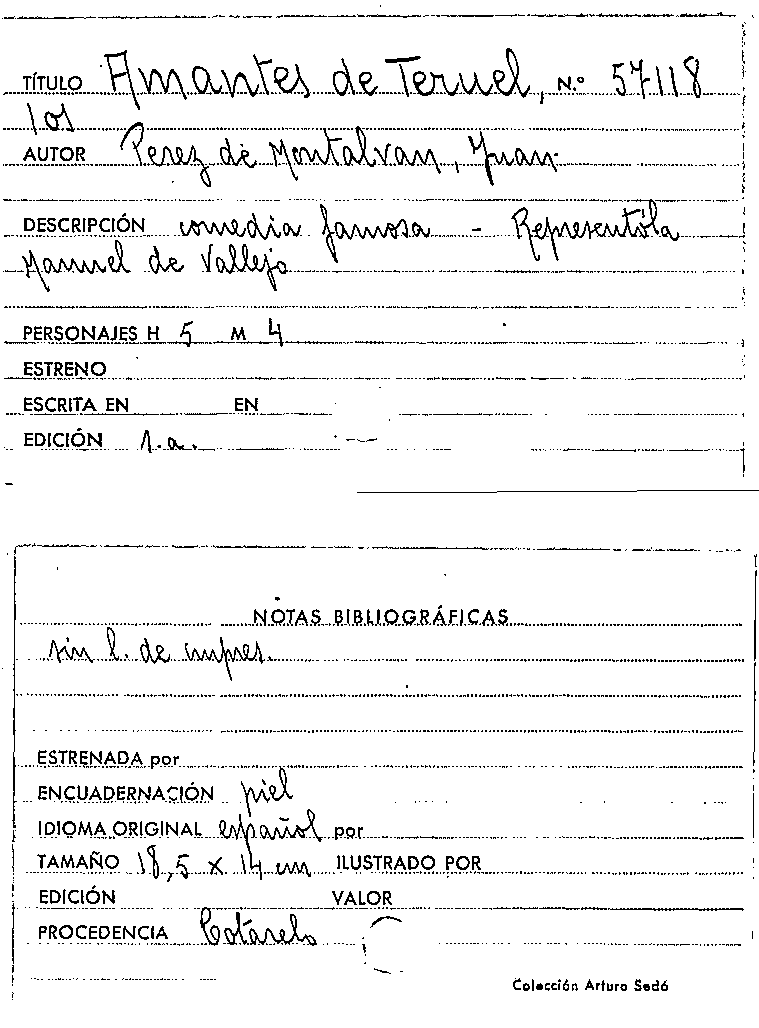 TÍTULO Amantes de Teruel, N.º 57118
los
AUTOR Perez de Montalvan, Juan.
DESCRIPCIÓN comedia famosa - Representóla
Manuel de Vallejo
PERSONAJES H 5 M 4
ESTRENO
ESCRITA EN EN
EDICIÓN s.a.
NOTAS BIBLIOGRÁFICAS
sin l. de impres.
ESTRENADA por
ENCUADERNACIÓN piel
IDIOMA ORIGINAL español por
TAMAÑO 18,5 x 14 cm ILUSTRADO POR
EDICIÓN VALOR
PROCEDENCIA Cotarelo
Colección Arturo Sedó